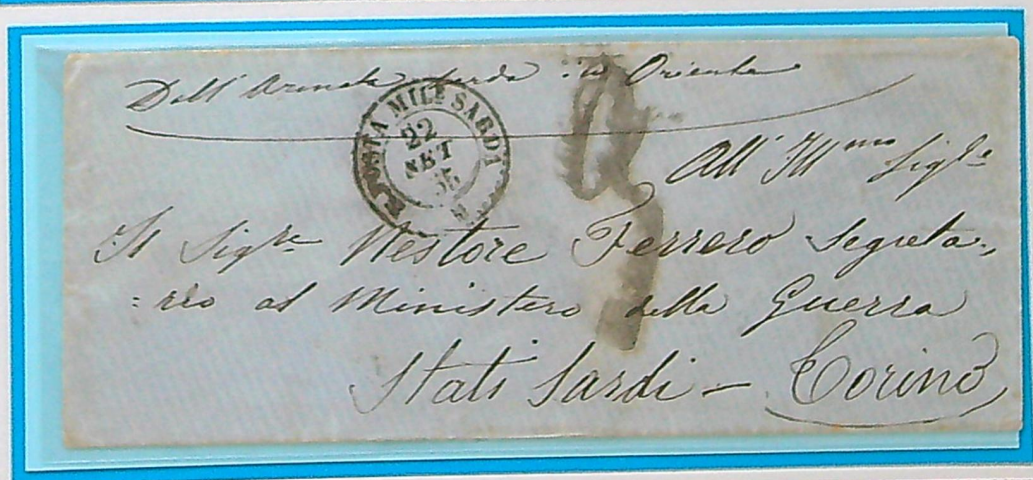 Dall' Armata Sarda in Oriente
R. POSTA MILE SARDA
22
SET
55
All' Ill.mo Sigre
Il Sigre Nestore Ferrero Segreta=
=rio al Ministero della Guerra
Stati Sardi - Torino